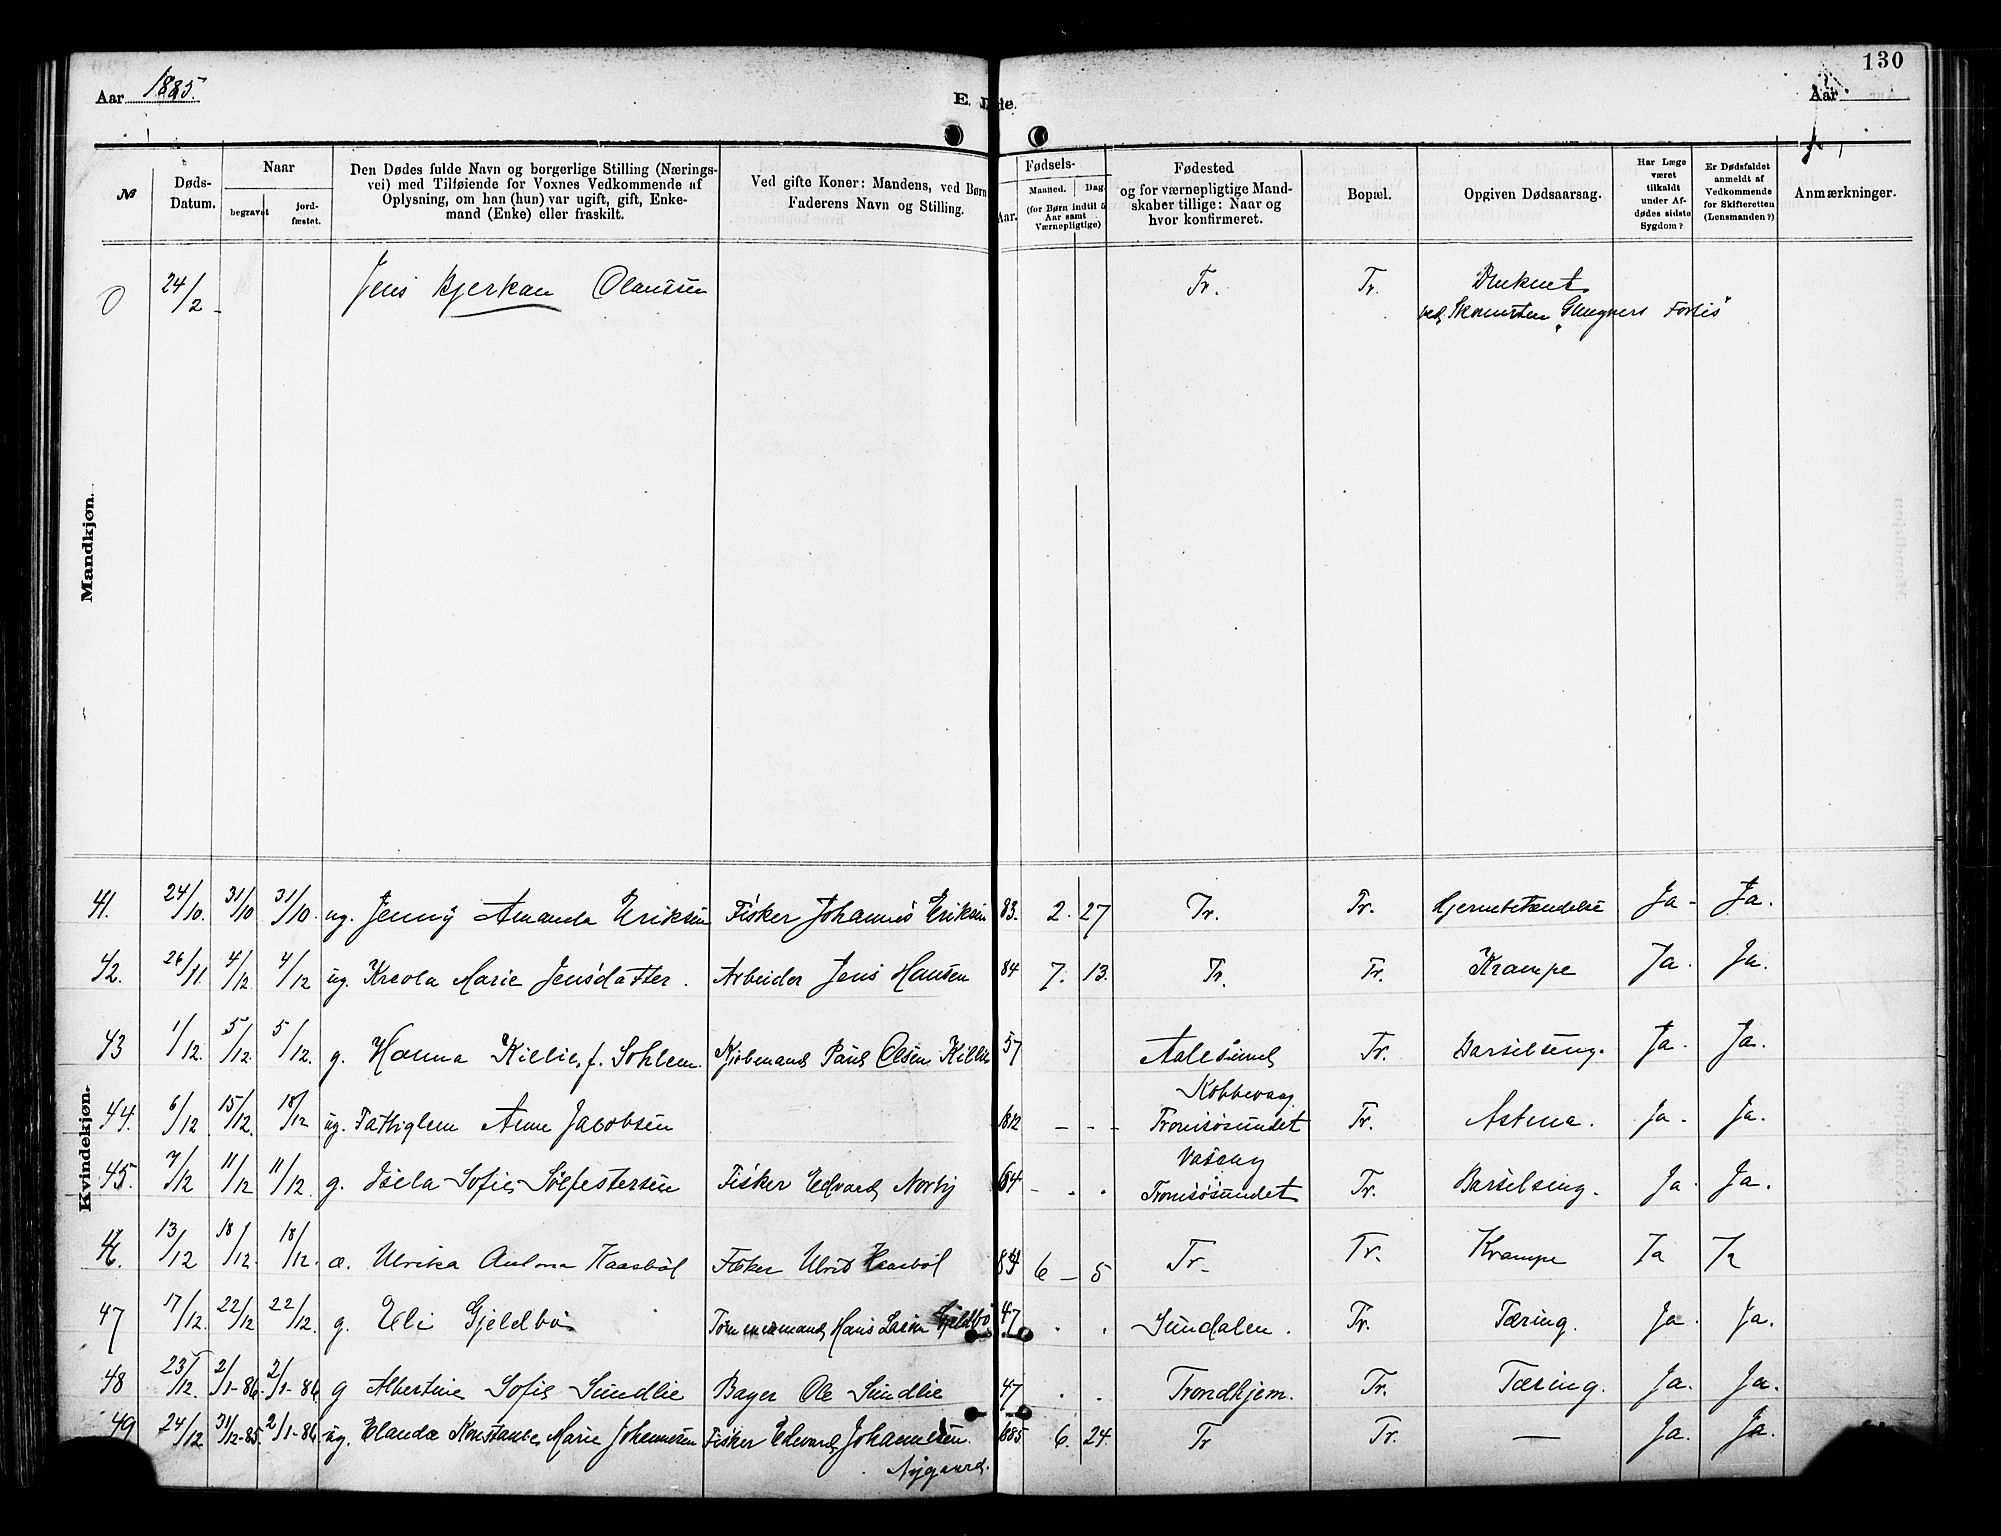 Aar 1885.
E. Døde.
Aar
130
№
Døds-Datum.
Naar
begravet
jord-fæstet.
Den Dødes fulde Navn og borgerlige Stilling (Nærings-
vei) med Tilføiende for Voxnes Vedkommende af
Oplysning, om han (hun) var ugift, gift, Enke-
mand (Enke) eller fraskilt.
Ved gifte Koner: Mandens, ved Børn
Faderens Navn og Stilling.
Fødsels-
Aar.
Maaned.
Dag.
(for Børn indtil 5
Aar samt
Værnepligtige)
Fødested
og for værnepligtige Mand-
skaber tillige: Naar og
hvor konfirmeret.
Bopæl.
Opgiven Dødsaarsag.
Har Læge
været
tilkaldt
under Af-
dødes sidste
Sygdom?
Er Dødsfaldet
anmeldt af
Vedkommende
for Skifteretten
(Lensmanden?)
Anmærkninger.
Mandkjøn.
0 24/2 Jens Bjerkan Olaussen Tr. Tr. Druknet
ved Skonnerten "Gungners Forlis"
Kvindekjøn.
41. 24/10. 31/10 31/10. ug. Jenny Amanda Eriksen Fisker Johannes Eriksen 83. 2. 27 Tr. Tr. Hjernebetændelse Ja - Ja.
42. 26/11. 4/12 4/12 ug. Kreola Marie Jensdatter. Arbeider Jens Hansen 84 7. 13. Tr. Tr. Krampe Ja. Ja.
43 1/12. 5/12. 5/12. g. Hanna Killie, f. Sohlem. Kjøbmand Paul Olsen Killie 57 Aalesund Tr. Barselseng. Ja. Ja.
44. 6/12 15/12. 18/12 ug. Fattiglem Anne Jacobsen 1812 - - - Kobbevaag
Tromsøsundet Tr. Astma. Ja - Ja.
45. 7/12 11/12 11/12. g. Isela Sofie Sølfestersen Fisker Edvard Norby 64 - . . Tromsøsundet Tr. Barselseng. Ja. Ja.
46. 13/12 18/12. 18/12. æ. Ulrika Antona Kaasbøl Fisker Ulrik Kaasbøl 84 6 - 5 Tr. Tr. Krampe Ja Ja
47 17/12. 22/12 22/12. g. Eli Gjeldbø Tømmermand Hans Larsen Gjeldbø 47 . . Sundalen. Tr. Tæring. Ja. Ja.
48 23/12. 2/1-86. 2/1-86 g Albertine Sofie Sundlie Bager Ole Sundlie 47 . . Trondhjem. Tr. Tæring. Ja. Ja.
49 24/12 31/12-85. 2/1-86 ug. Elandæ Konstanse Marie Johannesen Fisker Edvard Johannesen 1885 6. 24. Tr Tr. — Ja. Ja.
Nygaard.